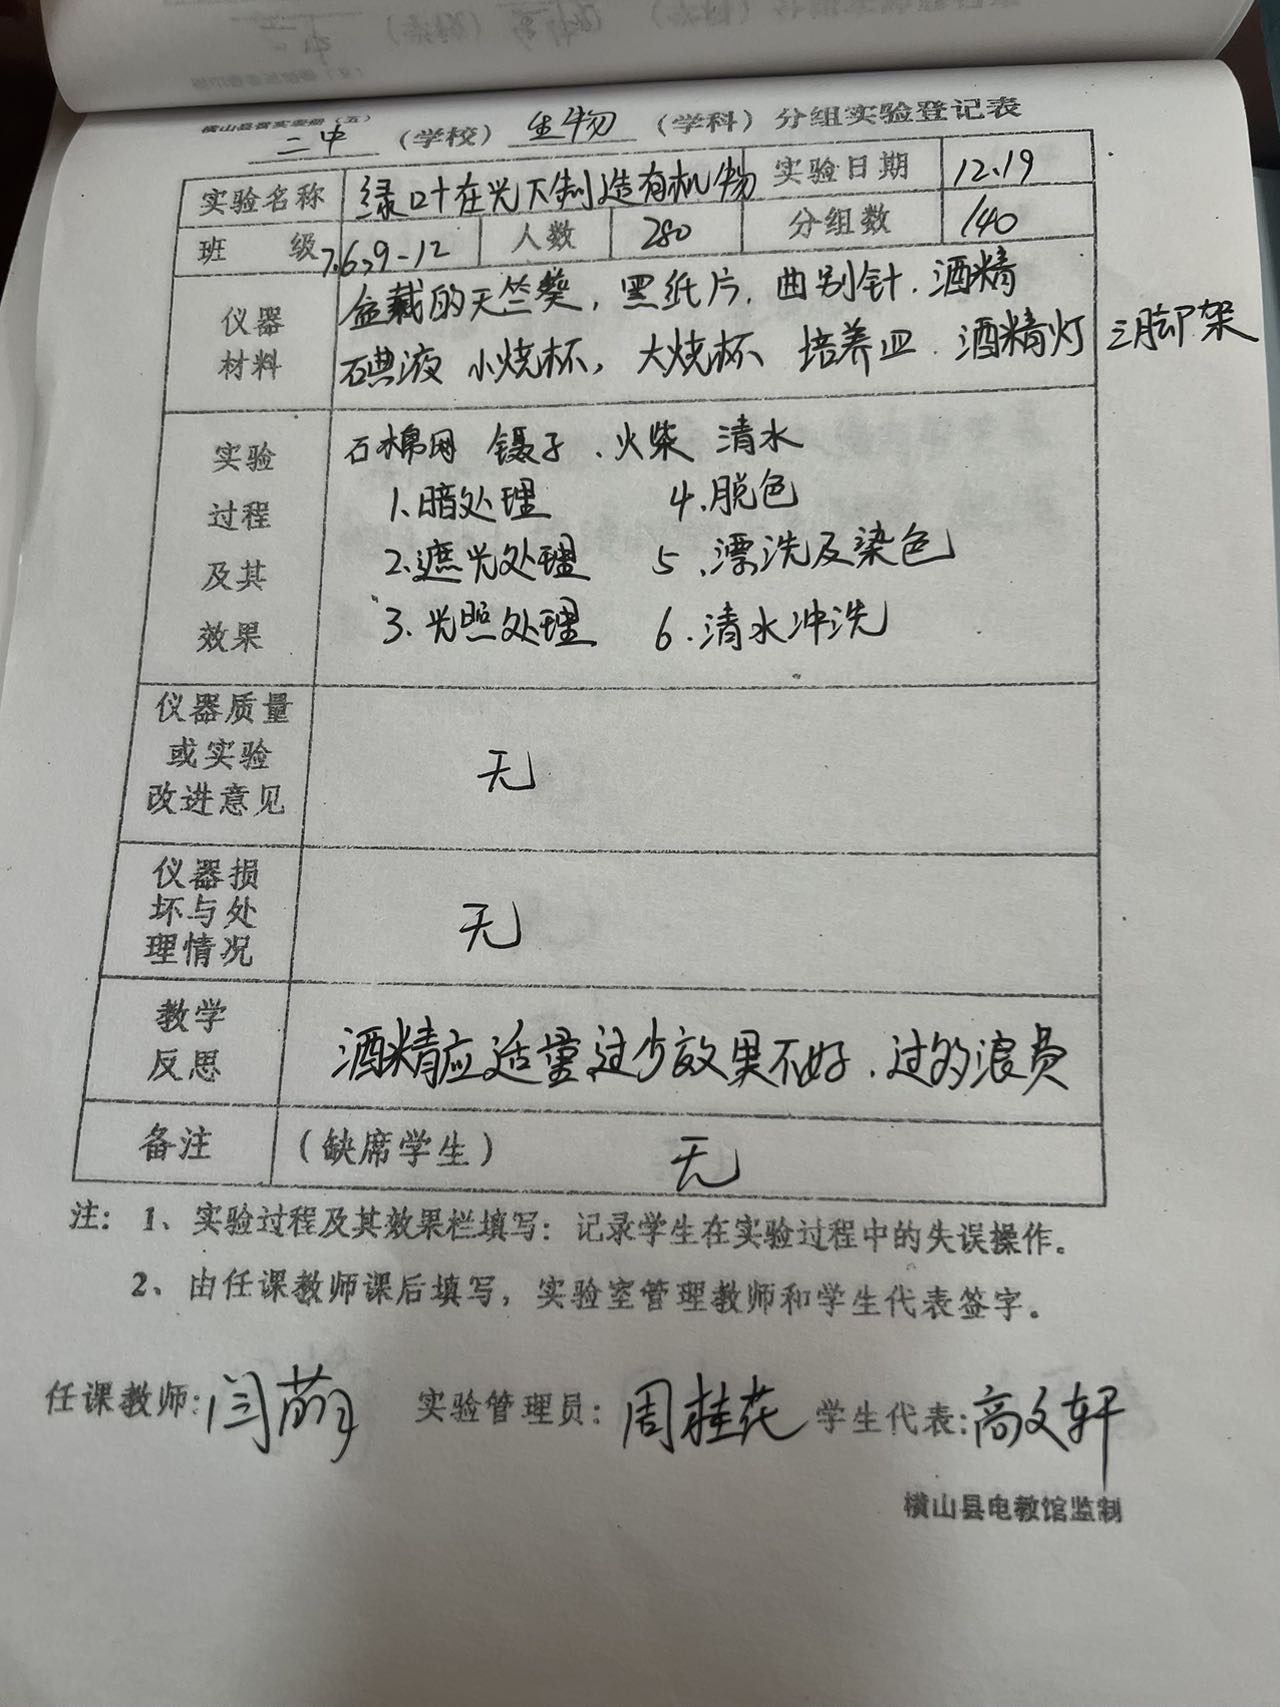 二中 (学校) 生物 (学科) 分组实验登记表
实验名称 绿叶在光下制造有机物 实验日期 12.19
班 级 7.6,9-12 人数 280 分组数 140
仪器材料 盆栽的天竺葵，黑纸片，曲别针，酒精
碘液 小烧杯，大烧杯 培养皿．酒精灯 三脚架
石棉网 镊子、火柴 清水
实验过程及其效果
1、暗处理 4、脱色
2、遮光处理 5、漂洗及染色
3、光照处理 6、清水冲洗
仪器质量或实验改进意见 无
仪器损坏与处理情况 无
教学反思 酒精应适量过少效果不好、过多浪费
备注 (缺席学生) 无
注：1、实验过程及其效果栏填写：记录学生在实验过程中的失误操作。
2、由任课教师课后填写，实验室管理教师和学生代表签字。
任课教师:闫萌 实验管理员：周桂花 学生代表:高文轩
横山县电教馆监制